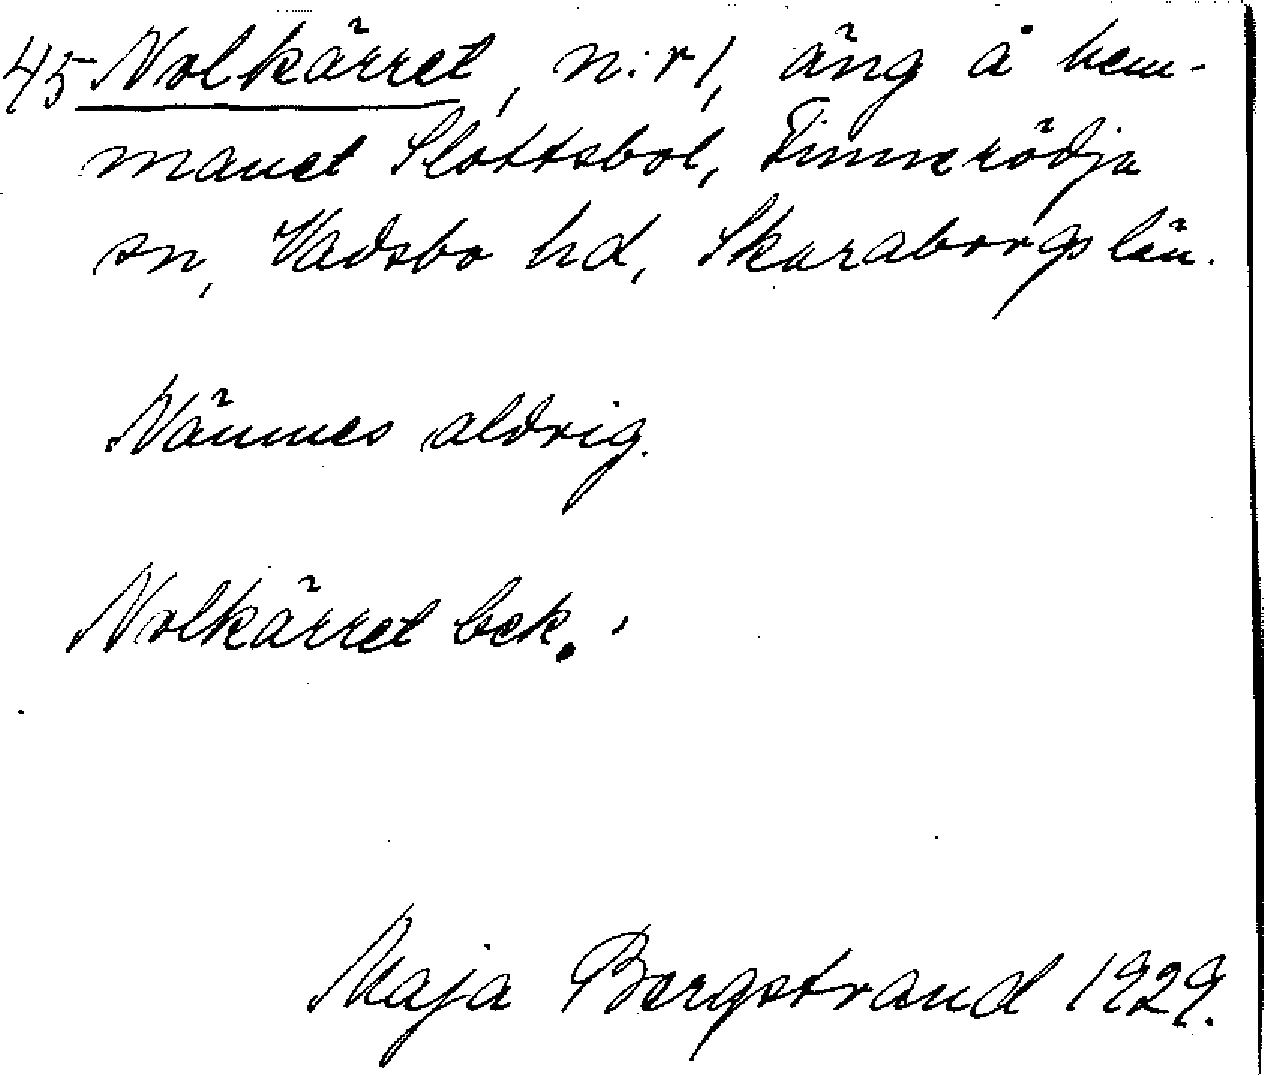 45 Nolkärret, n:r 1, äng å hem-
manet Slottsbol, Finnerödja
sn, Vadsbo hd, Skaraborgs län.
Nämnes aldrig.
Nolkärret bek.
Maja Bergstrand 1929.